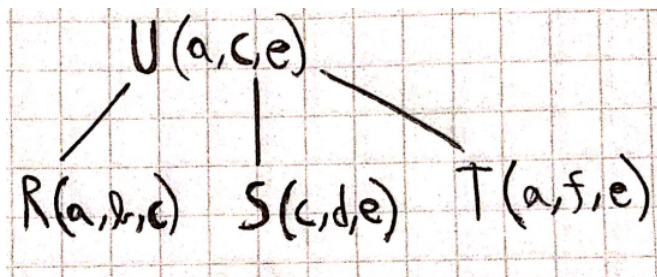 U(a,c,e)
R(a,b,c) S(c,d,e) T(a,f,e)